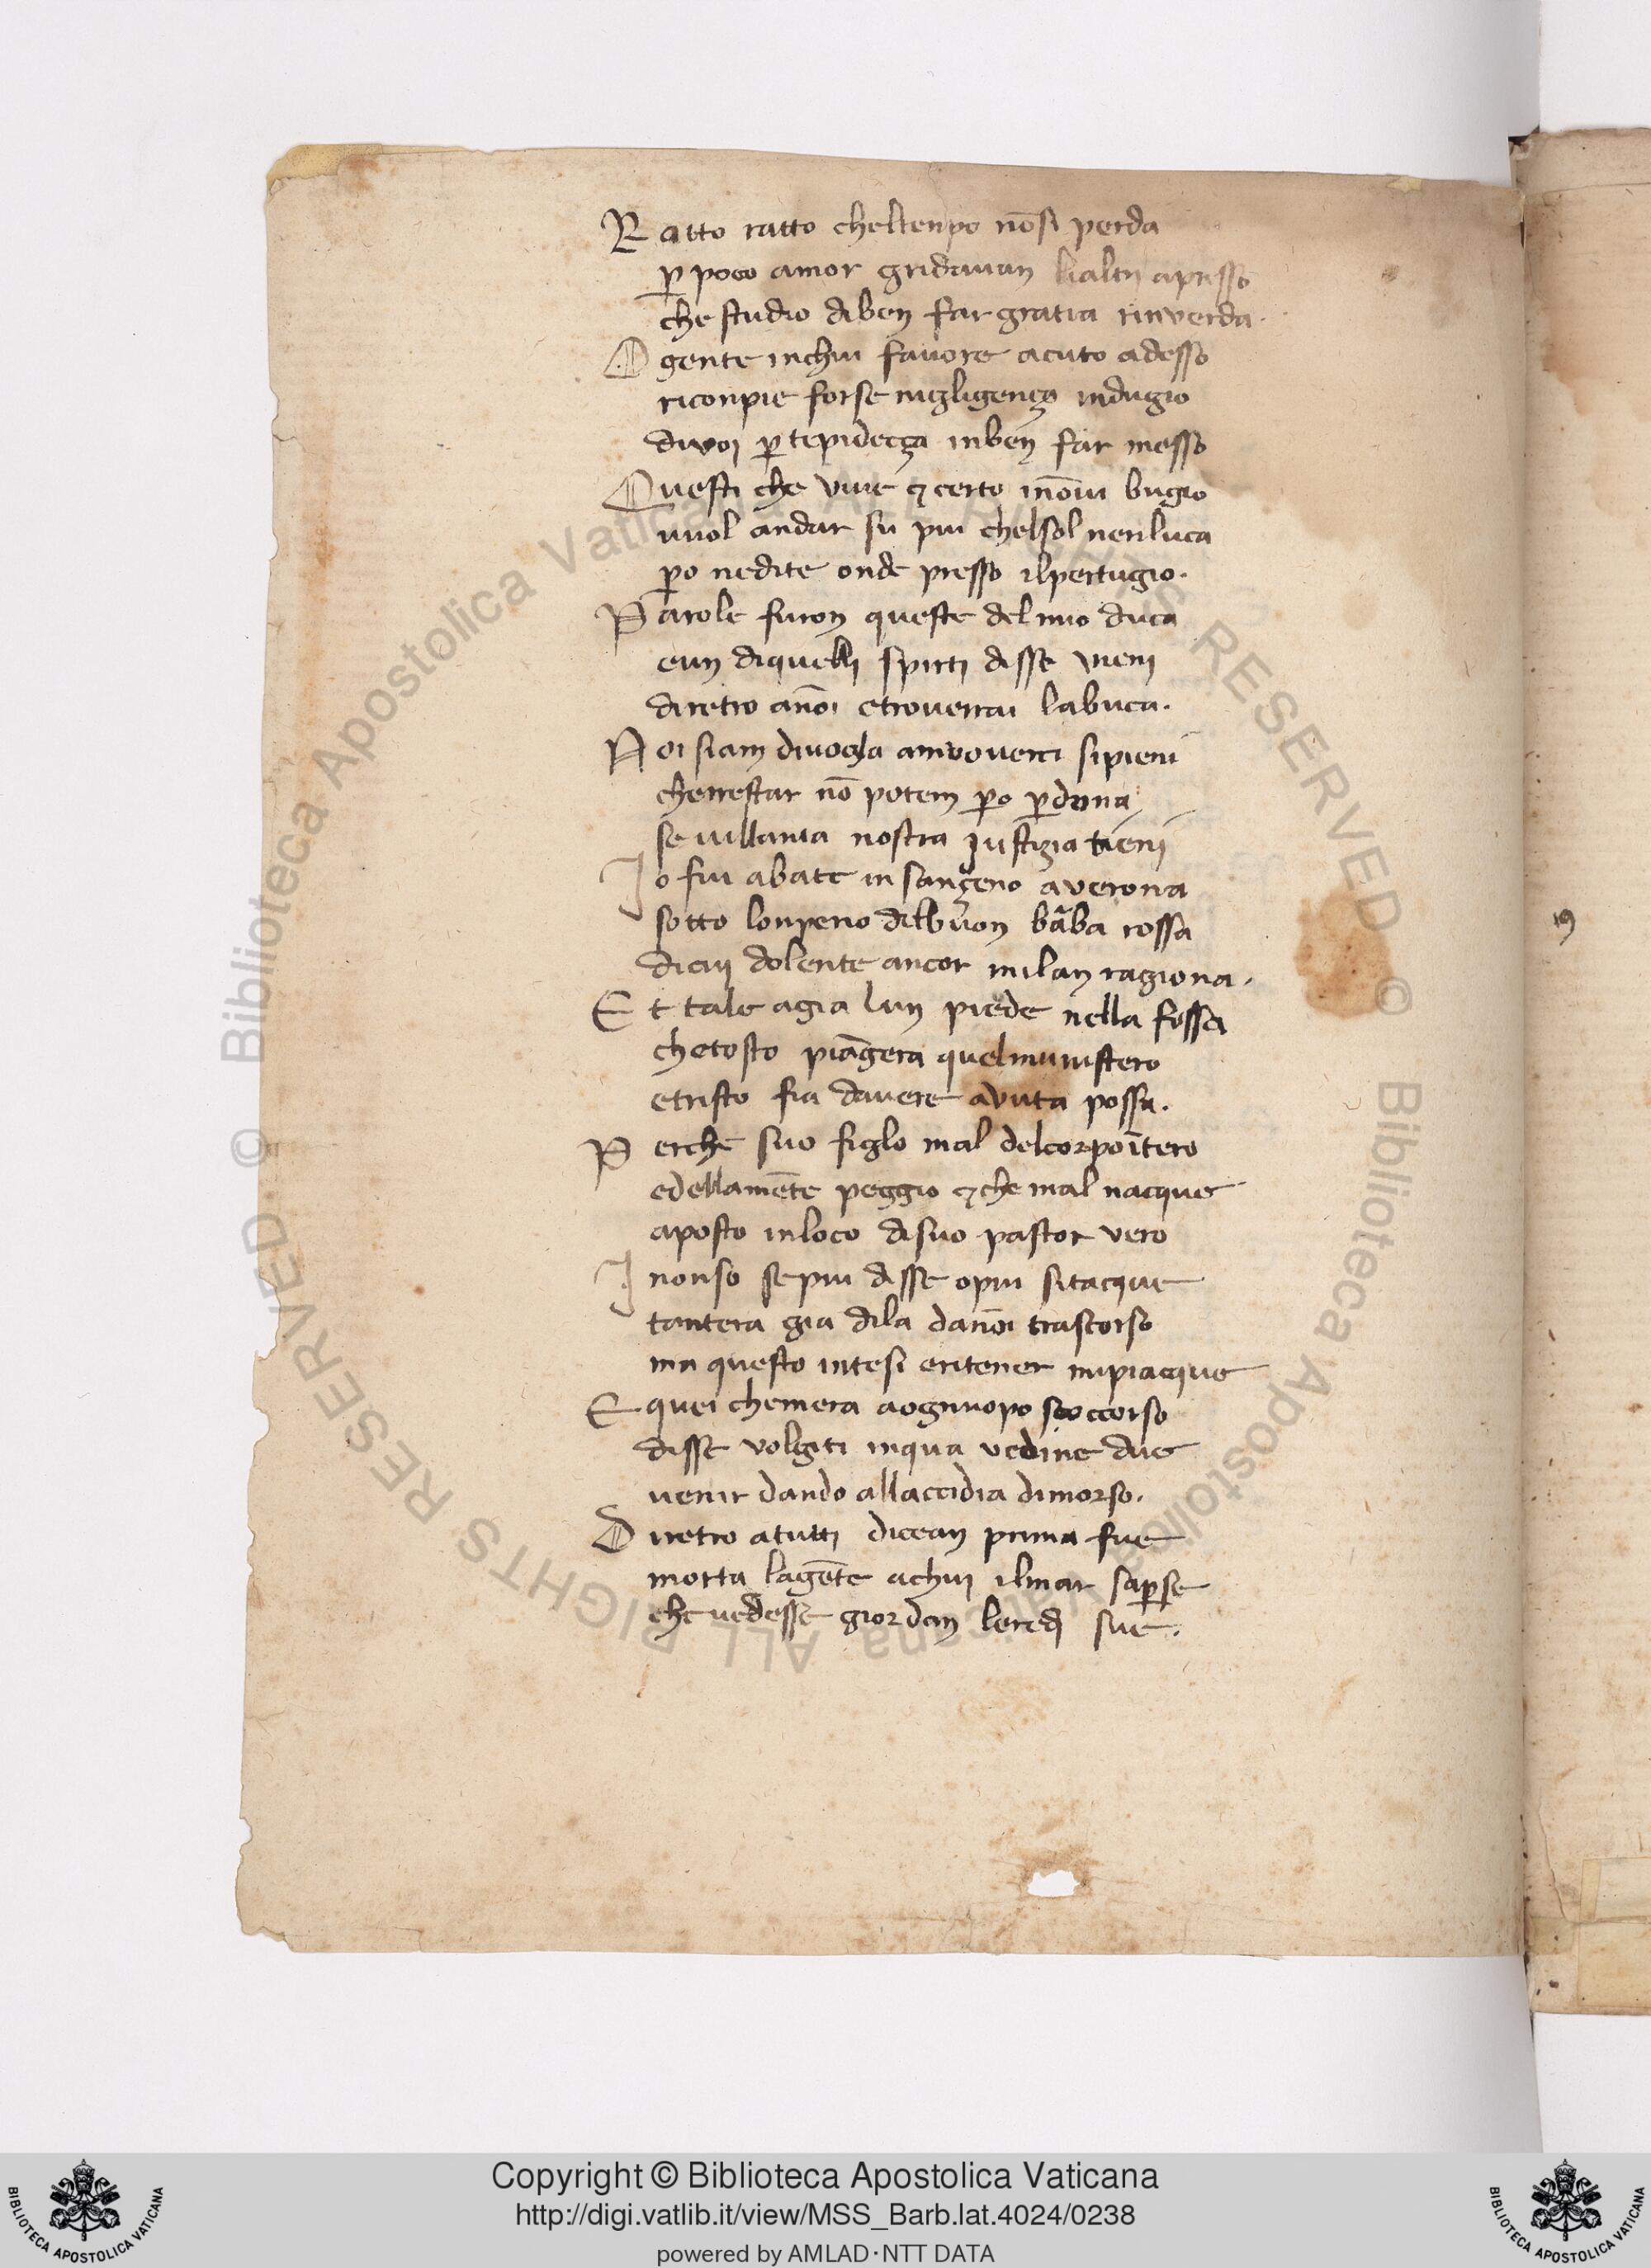 Ratto ratto cheltenpo nōsi perda
ꝑ poco amor gridauan lialtri apresso
che studio diben far gratia rinverda.
O gente inchui fauore acuto adesso
riconpie forse nigligença indugio
divoi ꝑ tepideçça inben far messo
Questi che viue ⁊ certo inōvi bugio
vuol andar su piu chelsol neriluca
ꝑo nedite onde presso ilpertugio.
Parole furon queste del mio duca
eun diquelli spirti disse vieni
diretro anōi etrouerrai labuca.
Noi siam diuogla amoouerci sipieni
cherrestar nō potem ꝑo ꝑdona
se uillania nostra iustizia tieni
Io fui abate in sançeno averona
sotto lonperio delbuon bāba rossa
dicui dolente ancor milan ragiona.
Et tale agia lun piede nella fossa
chetosto piāgera quelmunistero
etristo fia dauere avuta possa.
Perche suo figlo mal delcorpoītero
edellamēte peggio ⁊ che mal nacque
aposto inloco disuo pastor vero
I nonso sepiu disse opiu sitacque
tantera gia dila danōi trascorso
ma questo intesi eritener mipiacque
E quei chemera aognuopo soccorso
disse volgiti inqua vedine due
venir dando allaccidia dimorso.
Diretro atutti dicean prima fue
morta lagēte achui ilmar saꝑse
che uedesse giordan lerede sue.
19
© Biblioteca Apostolica Vaticana ALL RIGHTS RESERVED © Biblioteca Apostolica Vaticana ALL RIGHTS RESERVED
Copyright © Biblioteca Apostolica Vaticana
http://digi.vatlib.it/view/MSS_Barb.lat.4024/0238
powered by AMLAD·NTT DATA
BIBLIOTECA APOSTOLICA VATICANA
BIBLIOTECA APOSTOLICA VATICANA